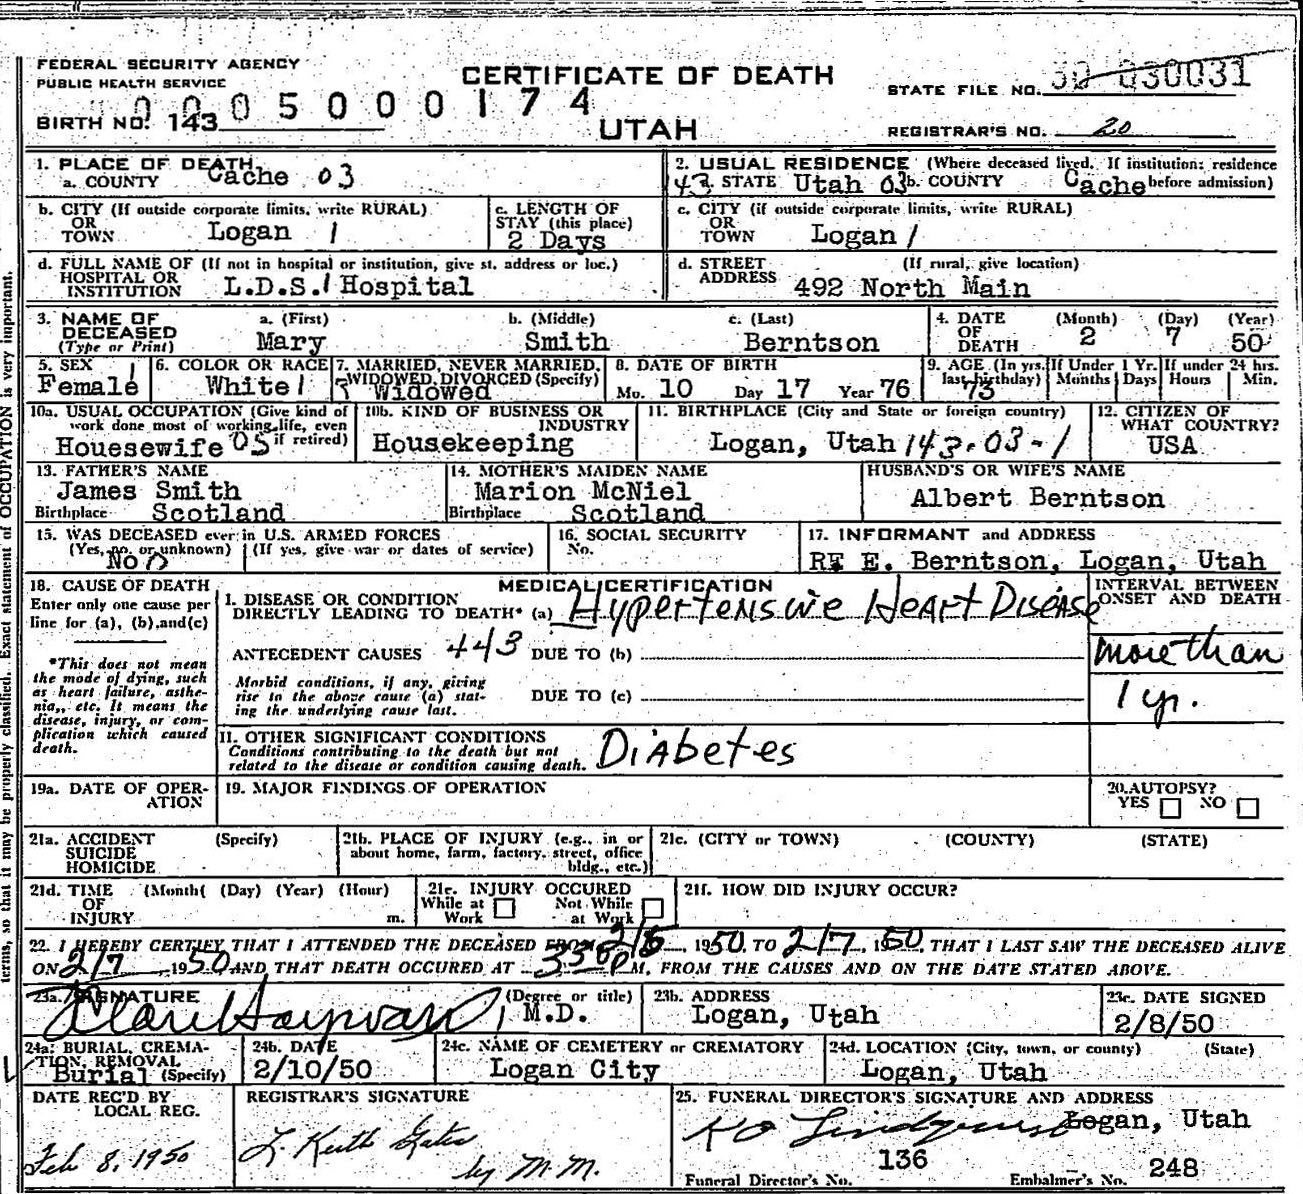 FEDERAL SECURITY AGENCY
PUBLIC HEALTH SERVICE
CERTIFICATE OF DEATH
STATE FILE NO. 50 030031
0005000174
BIRTH NO. 143
UTAH
REGISTRAR'S NO. 20
1. PLACE OF DEATH
a. COUNTY Cache 03
2. USUAL RESIDENCE (Where deceased lived. If institution: residence before admission)
43 a. STATE Utah 03 b. COUNTY Cache
b. CITY (If outside corporate limits, write RURAL)
OR TOWN Logan 1
c. LENGTH OF STAY (this place)
2 Days
c. CITY (if outside corporate limits, write RURAL)
OR TOWN Logan 1
d. FULL NAME OF (If not in hospital or institution, give st. address or loc.)
HOSPITAL OR INSTITUTION L.D.S. Hospital
d. STREET ADDRESS (If rural, give location)
492 North Main
3. NAME OF DECEASED (Type or Print)
a. (First) b. (Middle) c. (Last)
Mary Smith Berntson
4. DATE OF DEATH (Month) (Day) (Year)
2 7 50
5. SEX 1
Female
6. COLOR OR RACE
White 1
7. MARRIED, NEVER MARRIED, WIDOWED, DIVORCED (Specify)
Widowed
8. DATE OF BIRTH
Mo. 10 Day 17 Year 76
9. AGE (In yrs. last birthday) If Under 1 Yr. Months Days If under 24 hrs. Hours Min.
73
10a. USUAL OCCUPATION (Give kind of work done most of working life, even if retired)
Houesewife 05
10b. KIND OF BUSINESS OR INDUSTRY
Housekeeping
11. BIRTHPLACE (City and State or foreign country)
Logan, Utah 143-03-1
12. CITIZEN OF WHAT COUNTRY?
USA
13. FATHER'S NAME
James Smith
Birthplace Scotland
14. MOTHER'S MAIDEN NAME
Marion McNiel
Birthplace Scotland
HUSBAND'S OR WIFE'S NAME
Albert Berntson
15. WAS DECEASED ever in U.S. ARMED FORCES
(Yes, no, or unknown) (If yes, give war or dates of service)
No 0
16. SOCIAL SECURITY No.
17. INFORMANT and ADDRESS
E. Berntson, Logan, Utah
18. CAUSE OF DEATH
Enter only one cause per line for (a), (b), and (c)
*This does not mean the mode of dying, such as heart failure, asthenia, etc. It means the disease, injury, or complication which caused death.
MEDICAL CERTIFICATION
I. DISEASE OR CONDITION DIRECTLY LEADING TO DEATH* (a) Hypertensive Heart Disease
INTERVAL BETWEEN ONSET AND DEATH
ANTECEDENT CAUSES 443 DUE TO (b)
more than
Morbid conditions, if any, giving rise to the above cause (a) stating the underlying cause last.
DUE TO (c)
1 yr.
II. OTHER SIGNIFICANT CONDITIONS
Conditions contributing to the death but not related to the disease or condition causing death.
Diabetes
19a. DATE OF OPERATION
19. MAJOR FINDINGS OF OPERATION
20. AUTOPSY?
YES NO
21a. ACCIDENT SUICIDE HOMICIDE (Specify)
21b. PLACE OF INJURY (e.g., in or about home, farm, factory, street, office bldg., etc.)
21c. (CITY or TOWN) (COUNTY) (STATE)
21d. TIME OF INJURY (Month( (Day) (Year) (Hour) m.
21e. INJURY OCCURED
While at Work Not While at Work
21f. HOW DID INJURY OCCUR?
22. I HEREBY CERTIFY THAT I ATTENDED THE DECEASED FROM 2/6, 1950, TO 2/7, 1950, THAT I LAST SAW THE DECEASED ALIVE
ON 2/7 1950 AND THAT DEATH OCCURED AT M. FROM THE CAUSES AND ON THE DATE STATED ABOVE.
23a. SIGNATURE (Degree or title)
M.D.
23b. ADDRESS
Logan, Utah
23c. DATE SIGNED
2/8/50
24a. BURIAL, CREMATION, REMOVAL (Specify)
Burial
24b. DATE
2/10/50
24c. NAME OF CEMETERY or CREMATORY
Logan City
24d. LOCATION (City, town, or county) (State)
Logan, Utah
DATE REC'D BY LOCAL REG.
Feb 8, 1950
REGISTRAR'S SIGNATURE
L. Keith Gates
by M.M.
25. FUNERAL DIRECTOR'S SIGNATURE AND ADDRESS
Logan, Utah
Funeral Director's No. 136
Embalmer's No. 248
terms, so that it may be properly classified. Exact statement of OCCUPATION is very important.